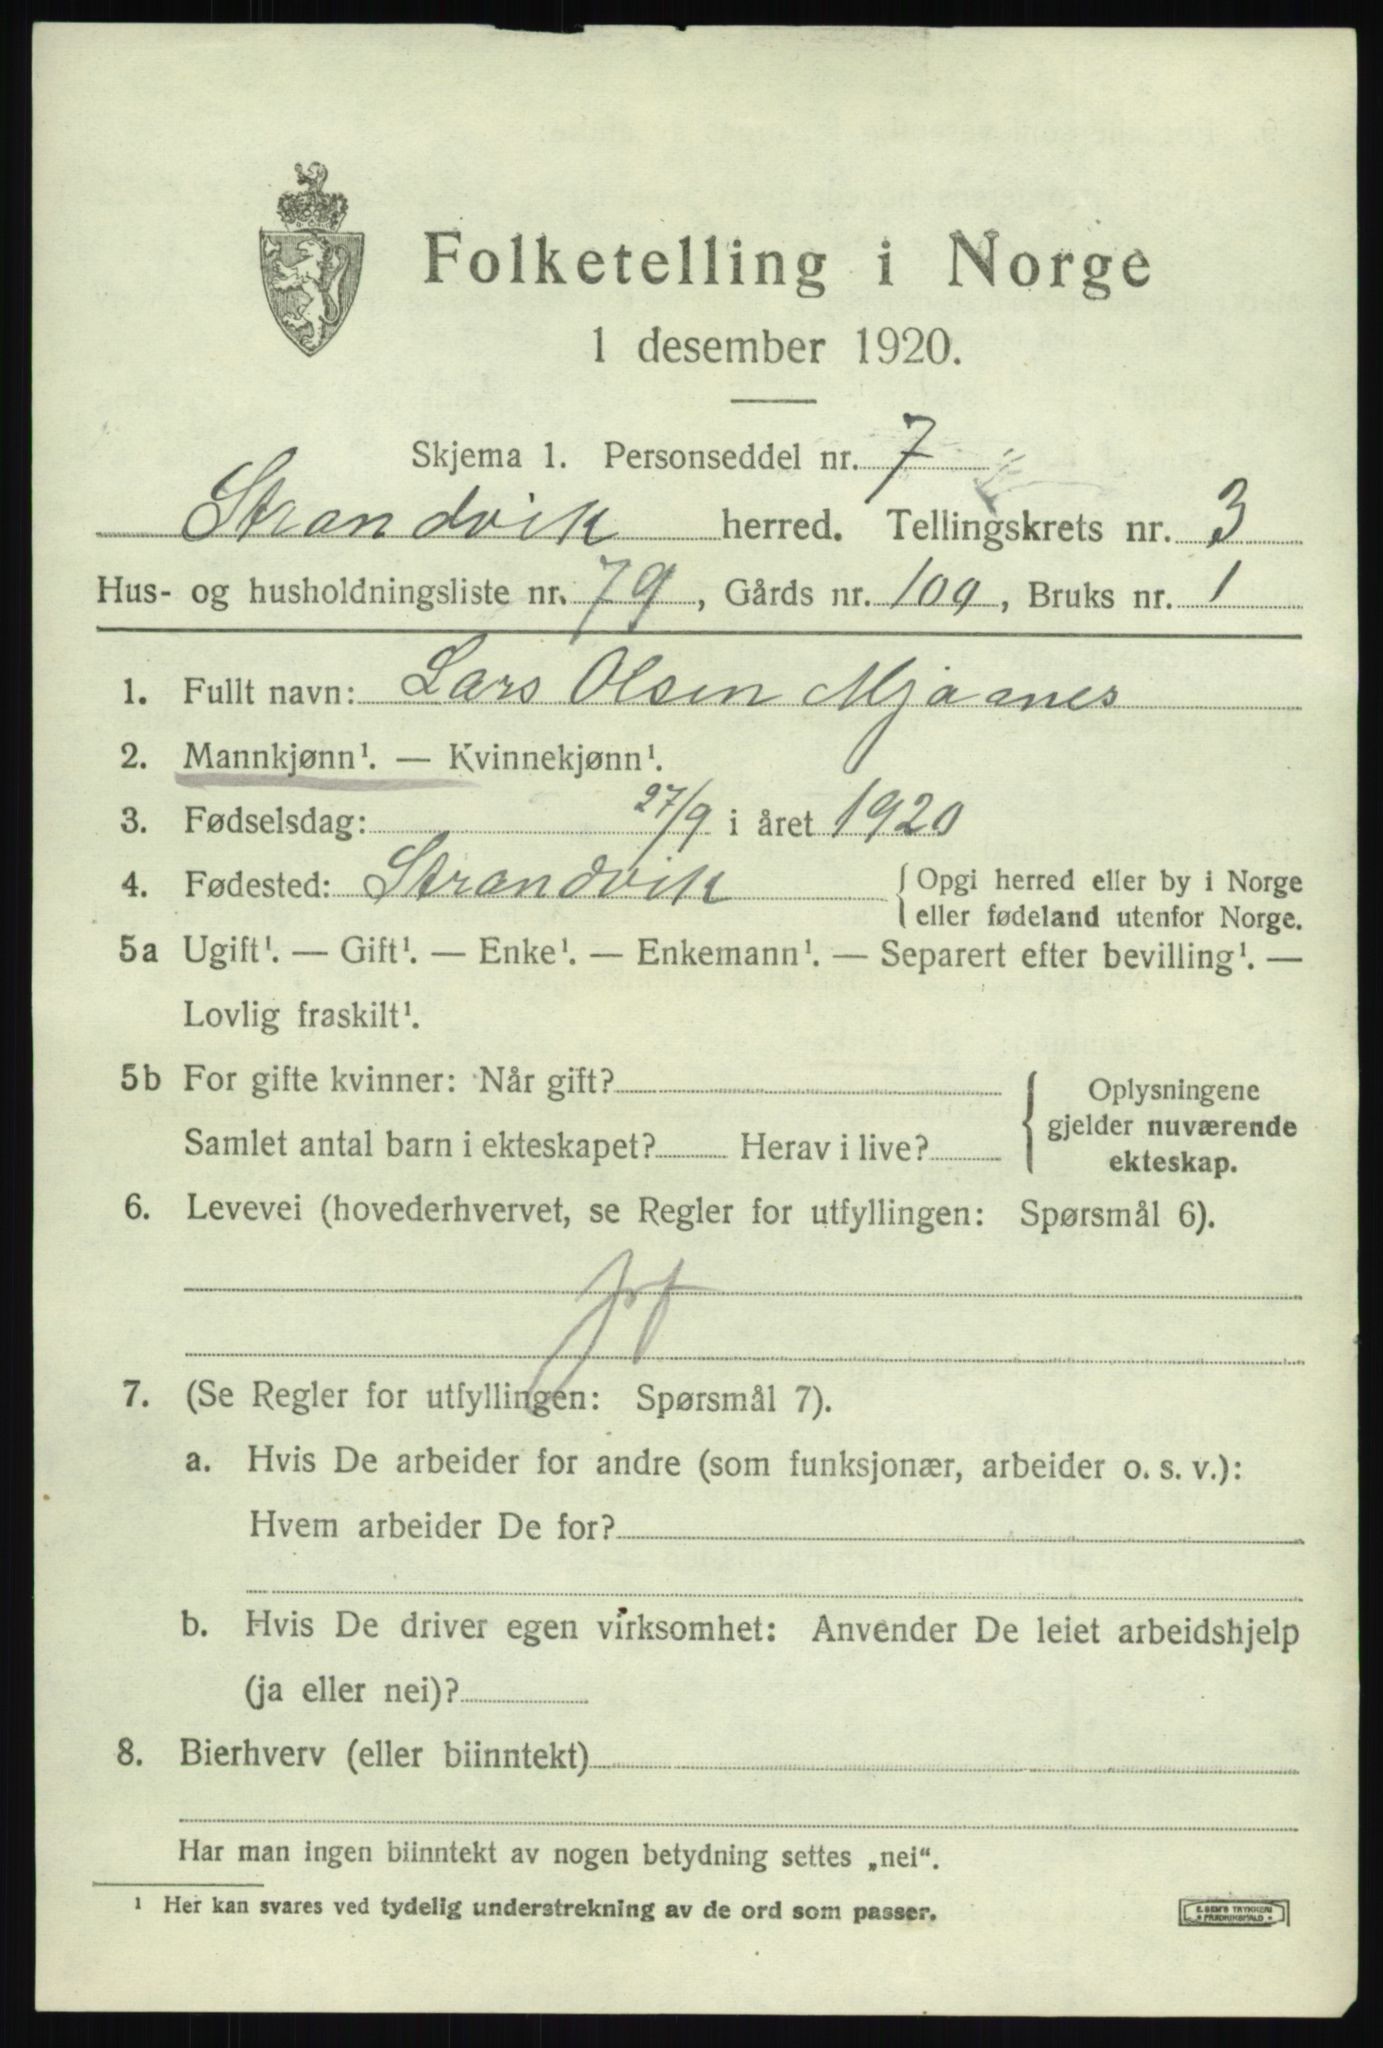 Folketelling i Norge
1 desember 1920.
Skjema 1. Personseddel nr. 7
Strandvik herred. Tellingskrets nr. 3
Hus- og husholdningsliste nr. 79, Gårds nr. 109, Bruks nr. 1
1. Fullt navn: Lars Olsen Mjaanes
2. Mannkjønn¹. — Kvinnekjønn¹.
3. Fødselsdag: 27/9 i året 1920
4. Fødested: Strandvik { Opgi herred eller by i Norge
eller fødeland utenfor Norge.
5a Ugift¹. — Gift¹. — Enke¹. — Enkemann¹. — Separert efter bevilling¹. —
Lovlig fraskilt¹.
5b For gifte kvinner: Når gift?
Samlet antal barn i ekteskapet? Herav i live?
{ Oplysningene
gjelder nuværende
ekteskap.
6. Levevei (hovederhvervet, se Regler for utfyllingen: Spørsmål 6).
7. (Se Regler for utfyllingen: Spørsmål 7).
a. Hvis De arbeider for andre (som funksjonær, arbeider o. s. v.):
Hvem arbeider De for?
b. Hvis De driver egen virksomhet: Anvender De leiet arbeidshjelp
(ja eller nei)?
8. Bierhverv (eller biinntekt)
Har man ingen biinntekt av nogen betydning settes „nei“.
¹ Her kan svares ved tydelig understrekning av de ord som passer.
E. SEM'S TRYKKERI
• FREDRIKSHALD •